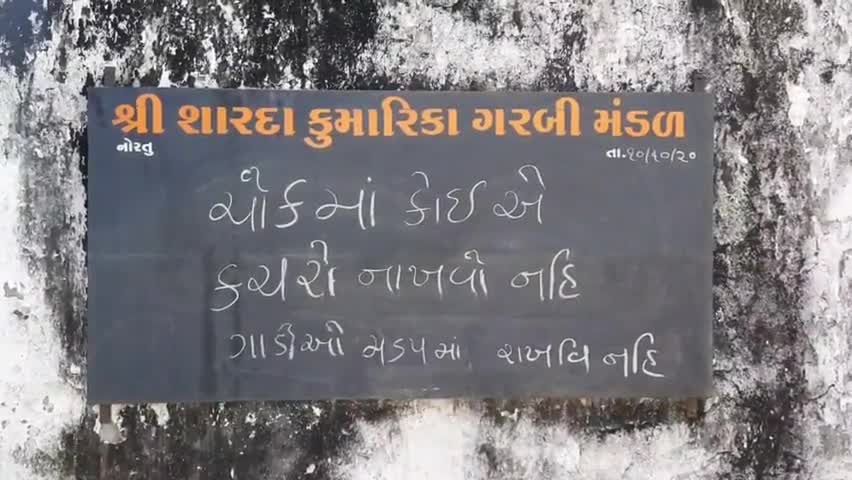 શ્રી શારદા કુમારિકા ગરબી મંડળ
નોરતુ તા.૧૦/૧૦/૨૦
ચોકમાં કોઇ એ
કચરો નાખવો નહિ
ગાડીઓ મડપમાં રાખવિ નહિ